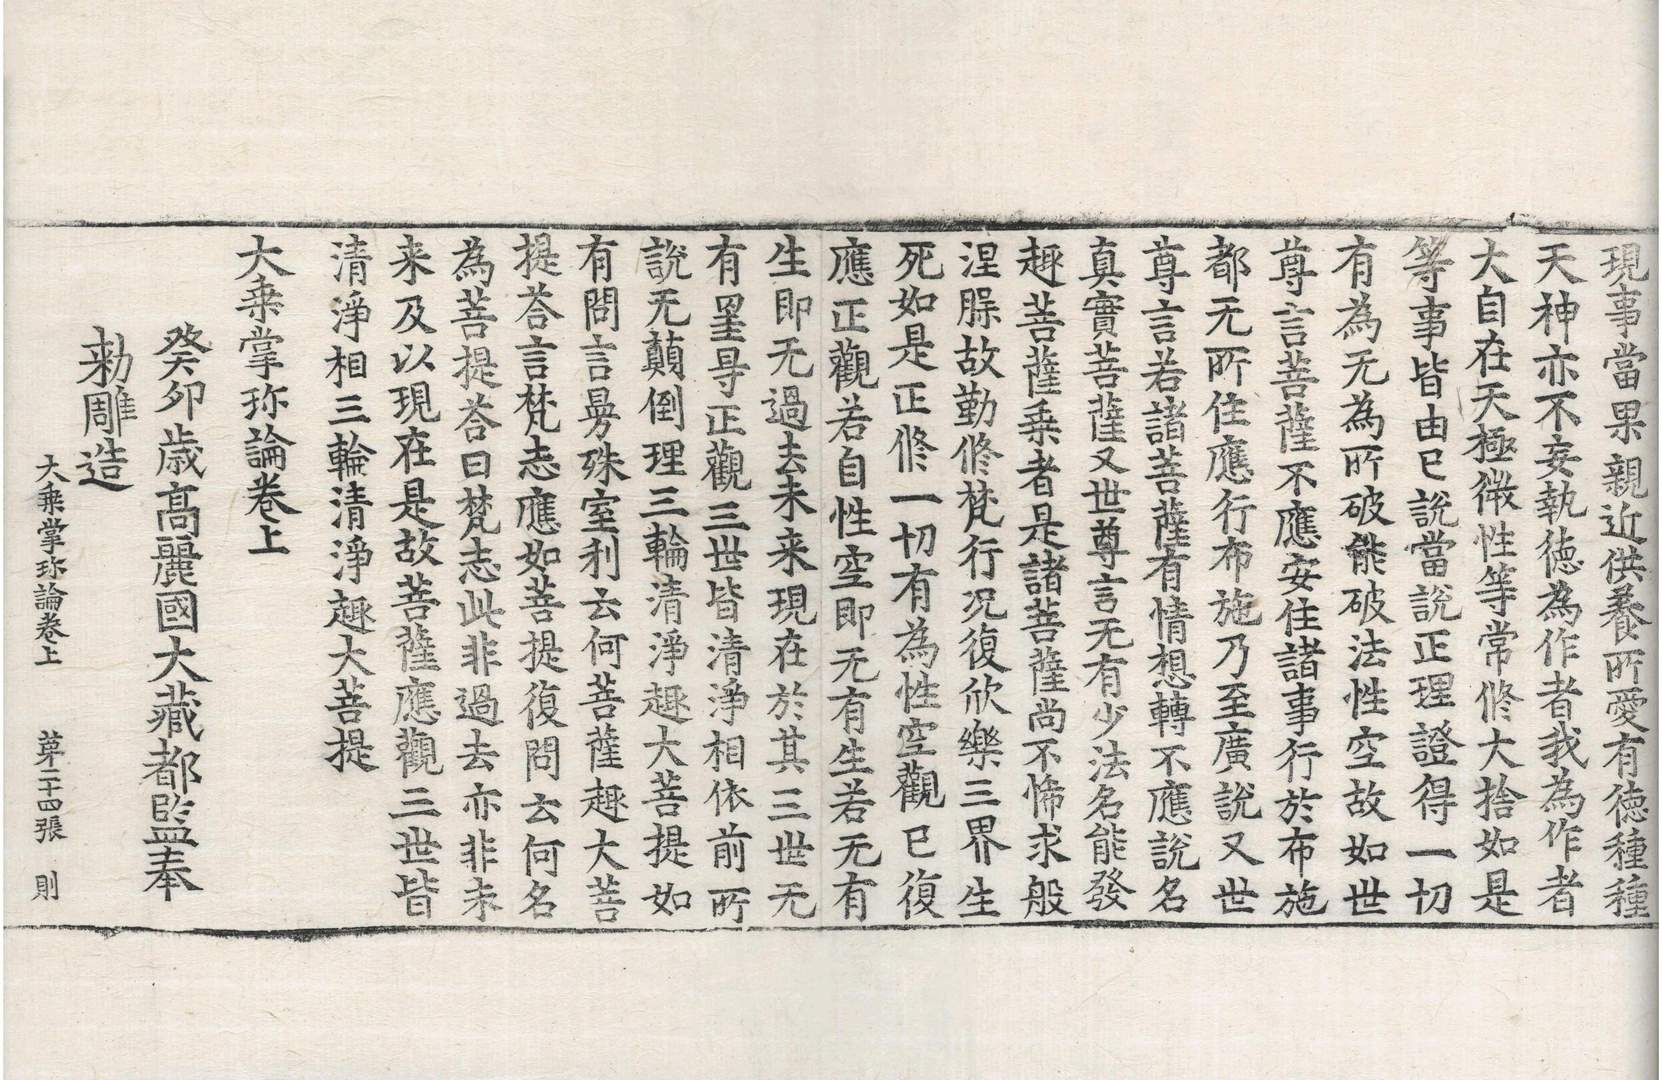 現事當果親近供養所愛有德種種
天神亦不妄執德為作者我為作者
大自在天極微性等常修大捨如是
等事皆由已說當說正理證得一切
有為无為所破能破法性空故如世
尊言菩薩不應安住諸事行於布施
都无所住應行布施乃至廣說又世
尊言若諸菩薩有情想轉不應說名
真實菩薩又世尊言无有少法名能發
趣菩薩乘者是諸菩薩尚不怖求般
涅脲故勤修梵行况復欣樂三界生
死如是正修一切有為性空觀已復
應正觀若自性空即无有生若无有
生即无過去未来現在於其三世无
有罣㝵正觀三世皆清淨相依前所
說无顛倒理三輪清淨趣大菩提如
有問言曼殊室利云何菩薩趣大菩
提荅言梵志應如菩提復問云何名
為菩提荅曰梵志此非過去亦非未
来及以現在是故菩薩應觀三世皆
清淨相三輪清淨趣大菩提
大乘掌珎論卷上
癸卯歲高麗國大藏都監奉
勅雕造
大乘掌珎論卷上 苐二十四張 則